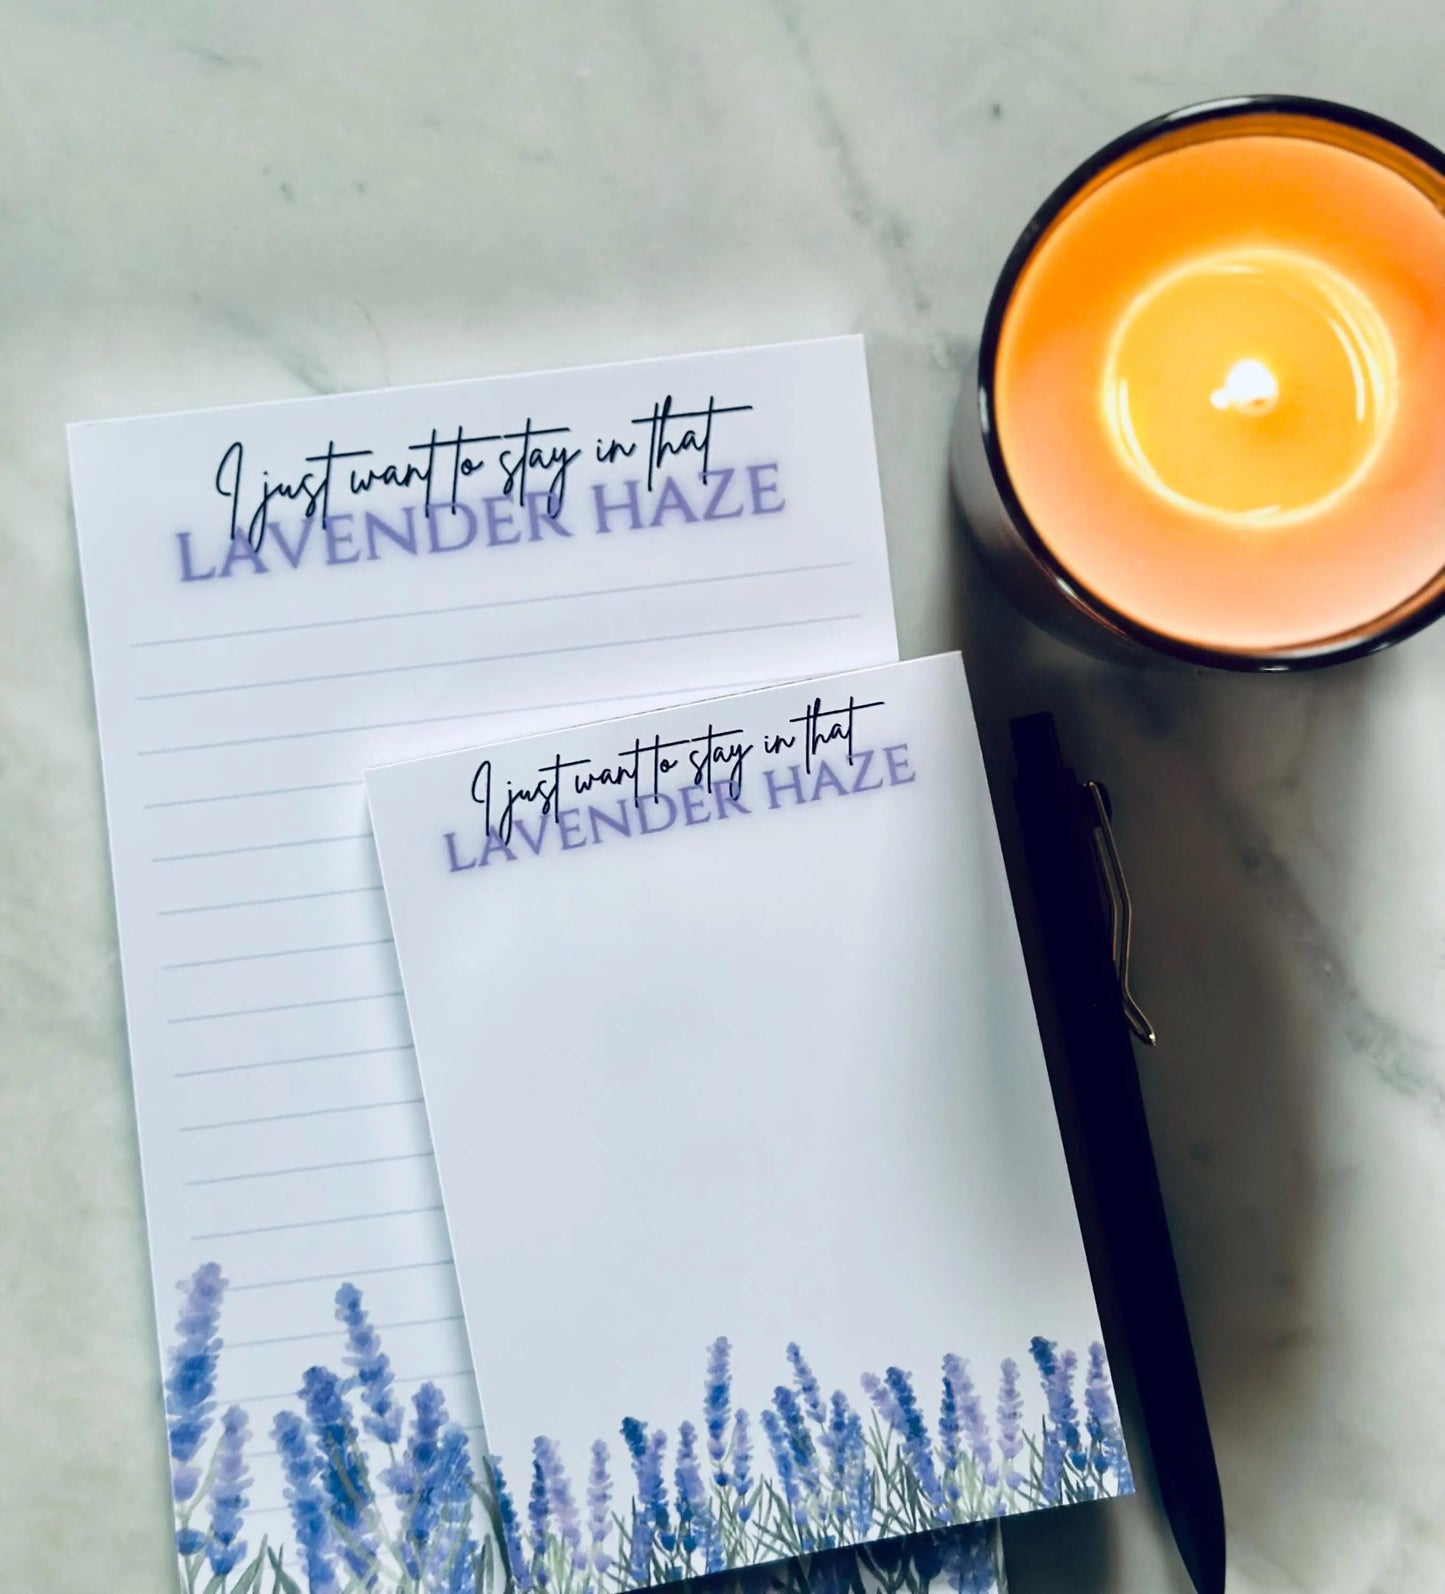 I just want to stay in that
LAVENDER HAZE
I just want to stay in that
LAVENDER HAZE